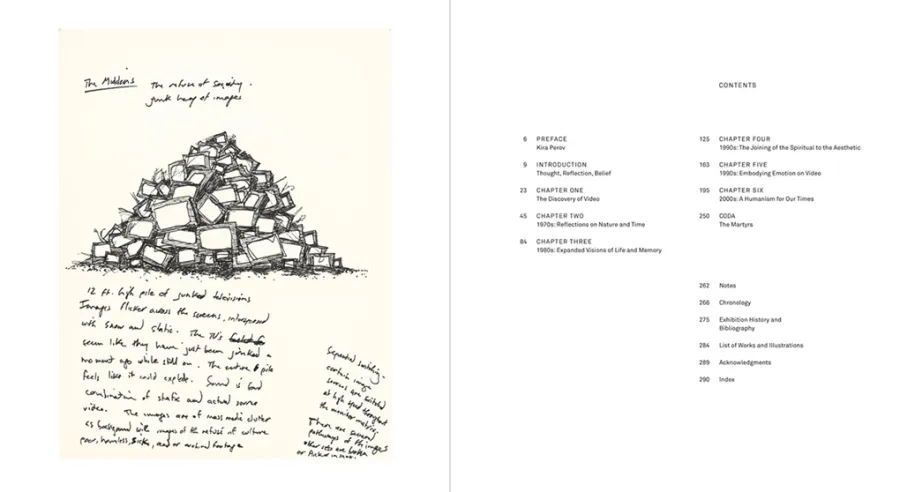 The Middens
The refuse of society.
junk heap of images
12 ft. high pile of junked televisions
Images flicker across the screens, interspersed
with snow and static. The TV's
seem like they have just been junked a
moment ago while still on. The entire pile
feels like it could explode. Sound is loud
combination of static and actual source
video. The images are of mass media clutter
as background with images of the refuse of culture
poor, homeless, sick, and or animal footage
Sequential switching -
certain image
screens are switched
at high speed throughout
the monitor matrix.
There are several
pathways of the images
other sets are broken
or flicker in snow.
CONTENTS
6 PREFACE
Kira Perov
9 INTRODUCTION
Thought, Reflection, Belief
23 CHAPTER ONE
The Discovery of Video
45 CHAPTER TWO
1970s: Reflections on Nature and Time
84 CHAPTER THREE
1980s: Expanded Visions of Life and Memory
125 CHAPTER FOUR
1990s: The Joining of the Spiritual to the Aesthetic
163 CHAPTER FIVE
1990s: Embodying Emotion on Video
195 CHAPTER SIX
2000s: A Humanism for Our Times
250 CODA
The Martyrs
262 Notes
266 Chronology
275 Exhibition History and
Bibliography
284 List of Works and Illustrations
289 Acknowledgments
290 Index